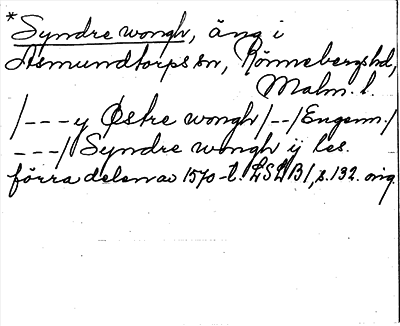 *Syndre wongh, äng i
Asmundtorps sn, Rönnebergs hd,
Malm. l.
/---y Østre wongh/--/Engenn./
---/ Syndre wongh ij les.
förra delen av 1570-t. LSLB1, s. 132. orig.